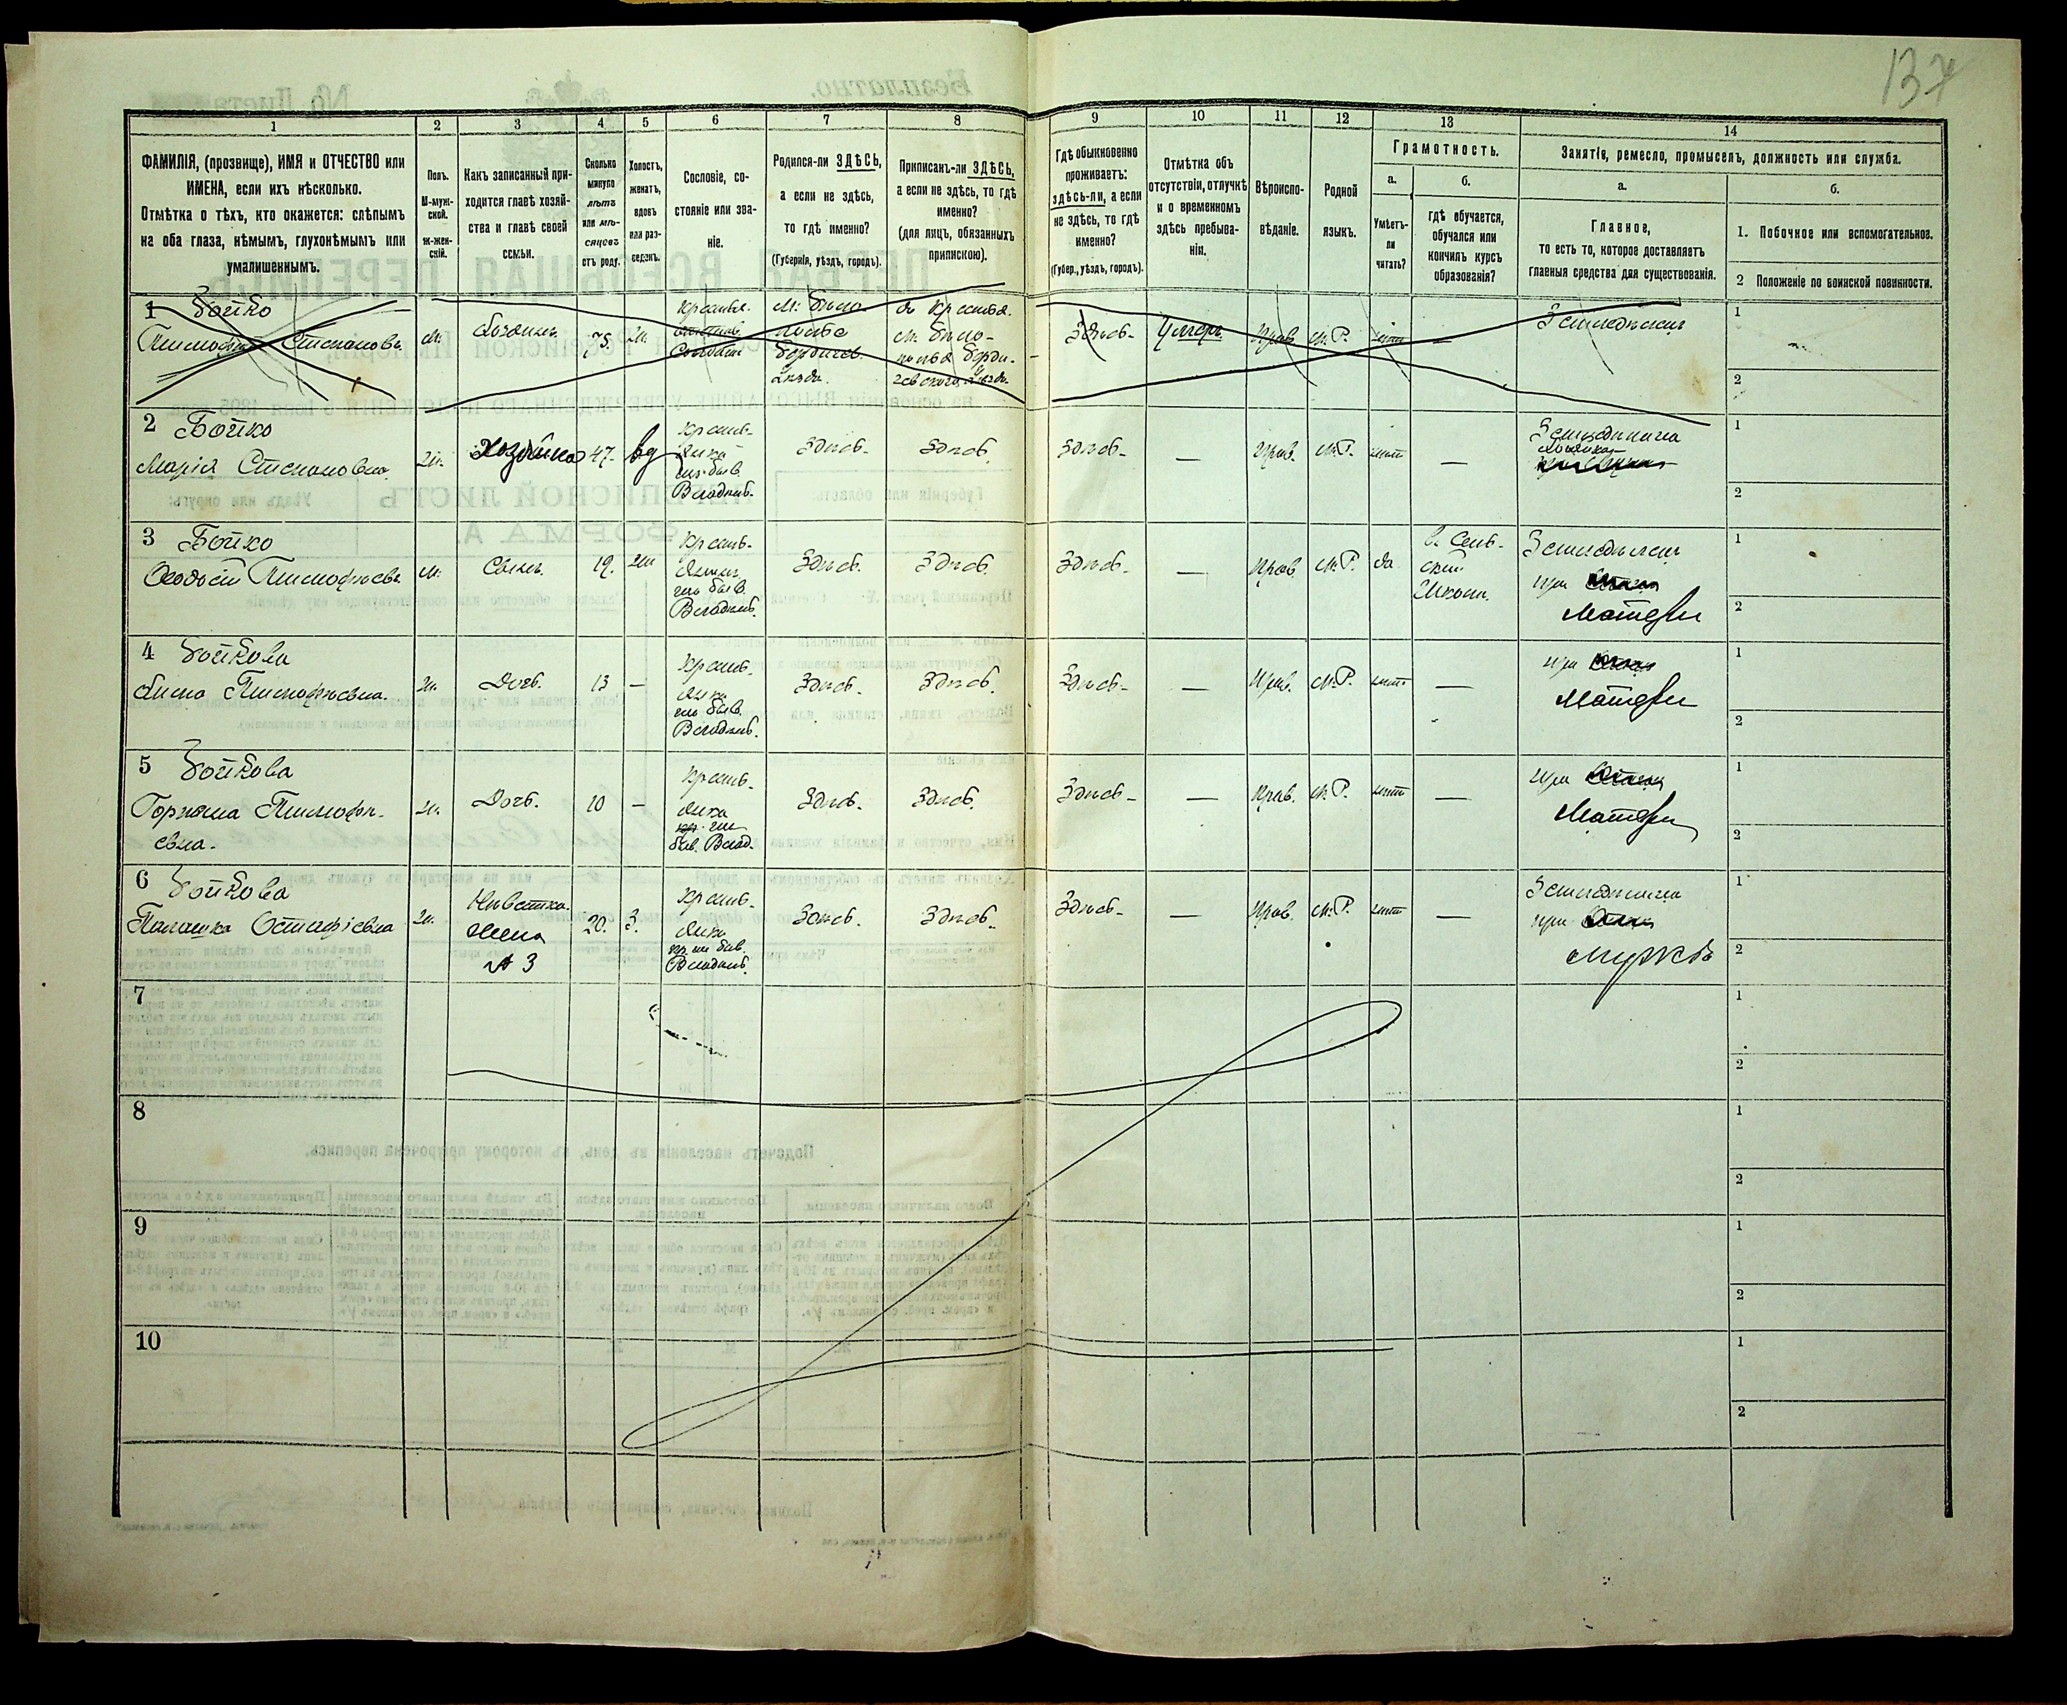 137
1 2 3 4 5 6 7 8 9 10 11 12 13 14
ФАМИЛІЯ, (прозвище), ИМЯ и ОТЧЕСТВО или
ИМЕНА, если ихъ нѣсколько.
Отмѣтка о тѣхъ, кто окажется: слѣпымъ
на оба глаза, нѣмымъ, глухонѣмымъ или
умалишеннымъ.
Полъ.
М-муж-
ской.
ж-жен-
скій.
Какъ записанный при-
ходится главѣ хозяй-
ства и главѣ своей
семьи.
Сколько
минуло
лѣтъ
или мѣ-
сяцевъ
отъ роду.
Холостъ,
женатъ,
вдовъ
или раз-
веденъ.
Сословіе, со-
стояніе или зва-
ніе.
Родился-ли ЗДѢСЬ,
а если не здѣсь,
то гдѣ именно?
(Губернія, уѣздъ, городъ).
Приписанъ-ли ЗДѢСЬ,
а если не здѣсь, то гдѣ
именно?
(для лицъ, обязанныхъ
припискою).
Гдѣ обыкновенно
проживаетъ:
здѣсь-ли, а если
не здѣсь, то гдѣ
именно?
(Губер., уѣздъ, городъ).
Отмѣтка объ
отсутствіи, отлучкѣ
и о временномъ
здѣсь пребыва-
ніи.
Вѣроиспо-
вѣданіе.
Родной
языкъ.
Грамотность.
а.
Умѣетъ-
ли
читать?
б.
гдѣ обучается,
обучался или
кончилъ курсъ
образованія?
Занятіе, ремесло, промыселъ, должность или служба.
а.
Главное,
то есть то, которое доставляетъ
главныя средства для существованія.
б.
1. Побочное или вспомогательное.
2 Положеніе по воинской повинности.
1 Бойко
Тимофей Степановъ
м.
Хозяинъ
75.
Солдатъ
Здѣсь.
Умеръ.
Прав.
м.Р.
нѣтъ
Земледѣлецъ
1
2
2 Бойко
Марія Степановна
ж.
Хозяйка
47.
вд
Крест-
янка
изъ быв.
Владѣль.
Здѣсь.
Здѣсь.
Здѣсь-
—
Прав.
м.Р.
нѣтъ
—
Земледѣлица
хозяйка
1
2
3 Бойко
Ѳеодосій Тимофѣевъ
м.
Сынъ.
19.
Крест-
янинъ
изъ быв.
Владѣль.
Здѣсь.
Здѣсь.
Здѣсь-
—
Прав.
м.Р.
да
въ Сель-
ской
Школѣ.
Земледѣлецъ
при
Матери
1
2
4 Бойкова
Анна Тимофѣевна
ж.
Дочь.
13
—
Крест-
янка
изъ быв.
Владѣль.
Здѣсь.
Здѣсь.
Здѣсь-
—
Прав.
м.Р.
нѣтъ
—
при
Матери
1
2
5 Бойкова
Горпына Тимофѣ-
евна.
ж.
Дочь.
10
—
Крест-
янка
изъ
быв. Влад.
Здѣсь.
Здѣсь.
Здѣсь-
—
Прав.
м.Р.
нѣтъ
—
при
Матери
1
2
6 Бойкова
Палашка Остафіевна
ж.
Невѣстка
жена
№ 3
20.
З.
Крест-
янка
быв.
Владѣль.
Здѣсь.
Здѣсь.
Здѣсь-
—
Прав.
м.Р.
нѣтъ
—
Земледѣлица
при
мужѣ
1
2
7
1
2
8
1
2
9
1
2
10
1
2